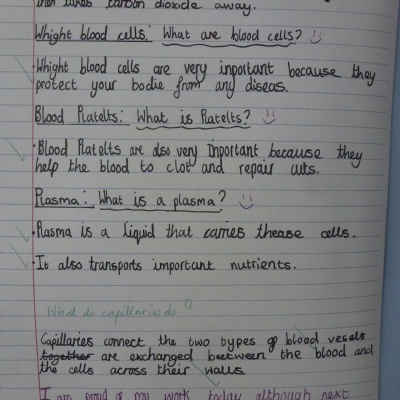 then takes carbon dioxide away.
Whight blood cells: What are blood cells?
Whight blood cells are very inportant because they
protect your bodie from any diseas.
Blood Platelts: What is Platelts?
Blood Platelts are also very important because they
help the blood to clot and repair cuts.
Plasma: What is a plasma?
Plasma is a liquid that carries thease cells.
It also transports important nutrients.
What do capillaries do?
Capillaries connect the two types of blood vesels
together are exchanged beetween the blood and
the cells across their walls.
I am proud of my work today although next